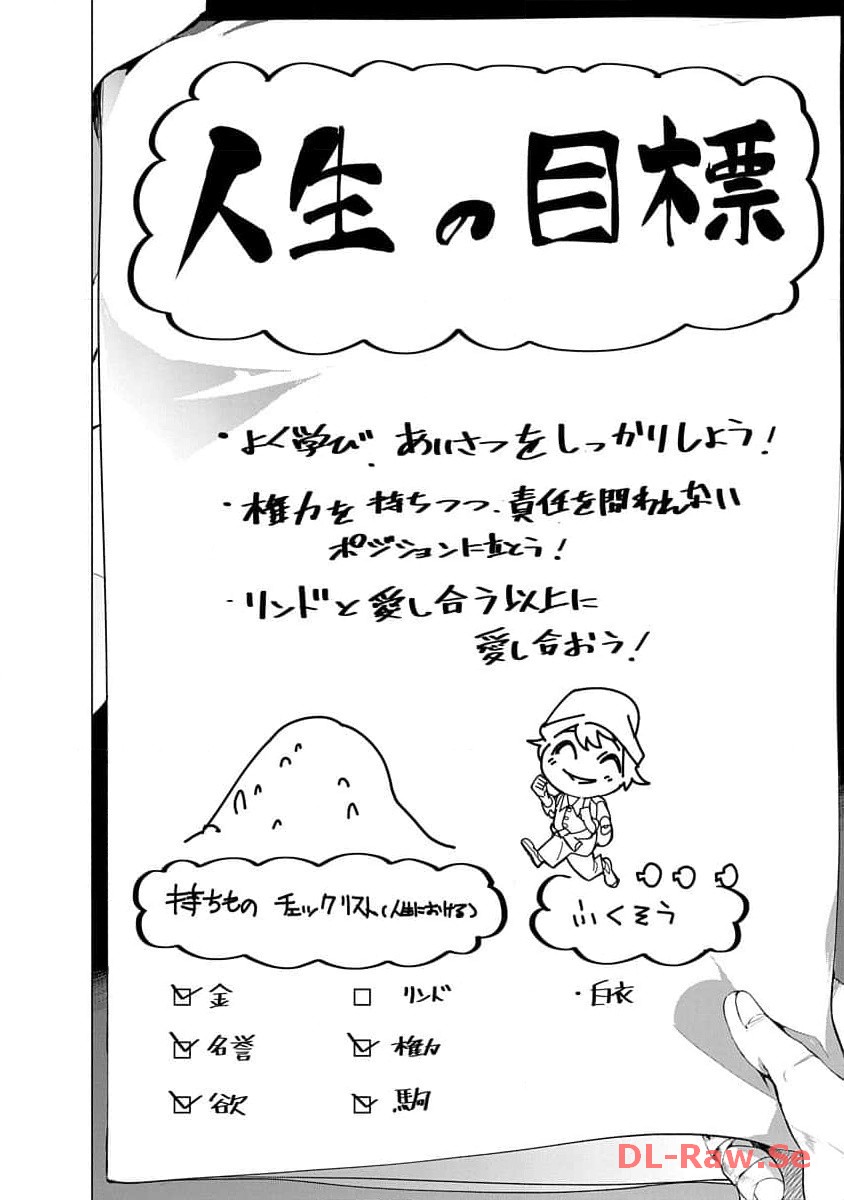 人生の目標
・よく学び、あいさつをしっかりしよう!
・権力を持ちつつ、責任を問われない
ポジションに立とう!
・リンドと愛し合う以上に
愛し合おう!
持ちもの チェックリスト(人生における)
☑ 金
☐ リンド
☑ 名誉
☑ 権力
☑ 欲
☑ 駒
ふくそう
・白衣
DL-Raw.Se